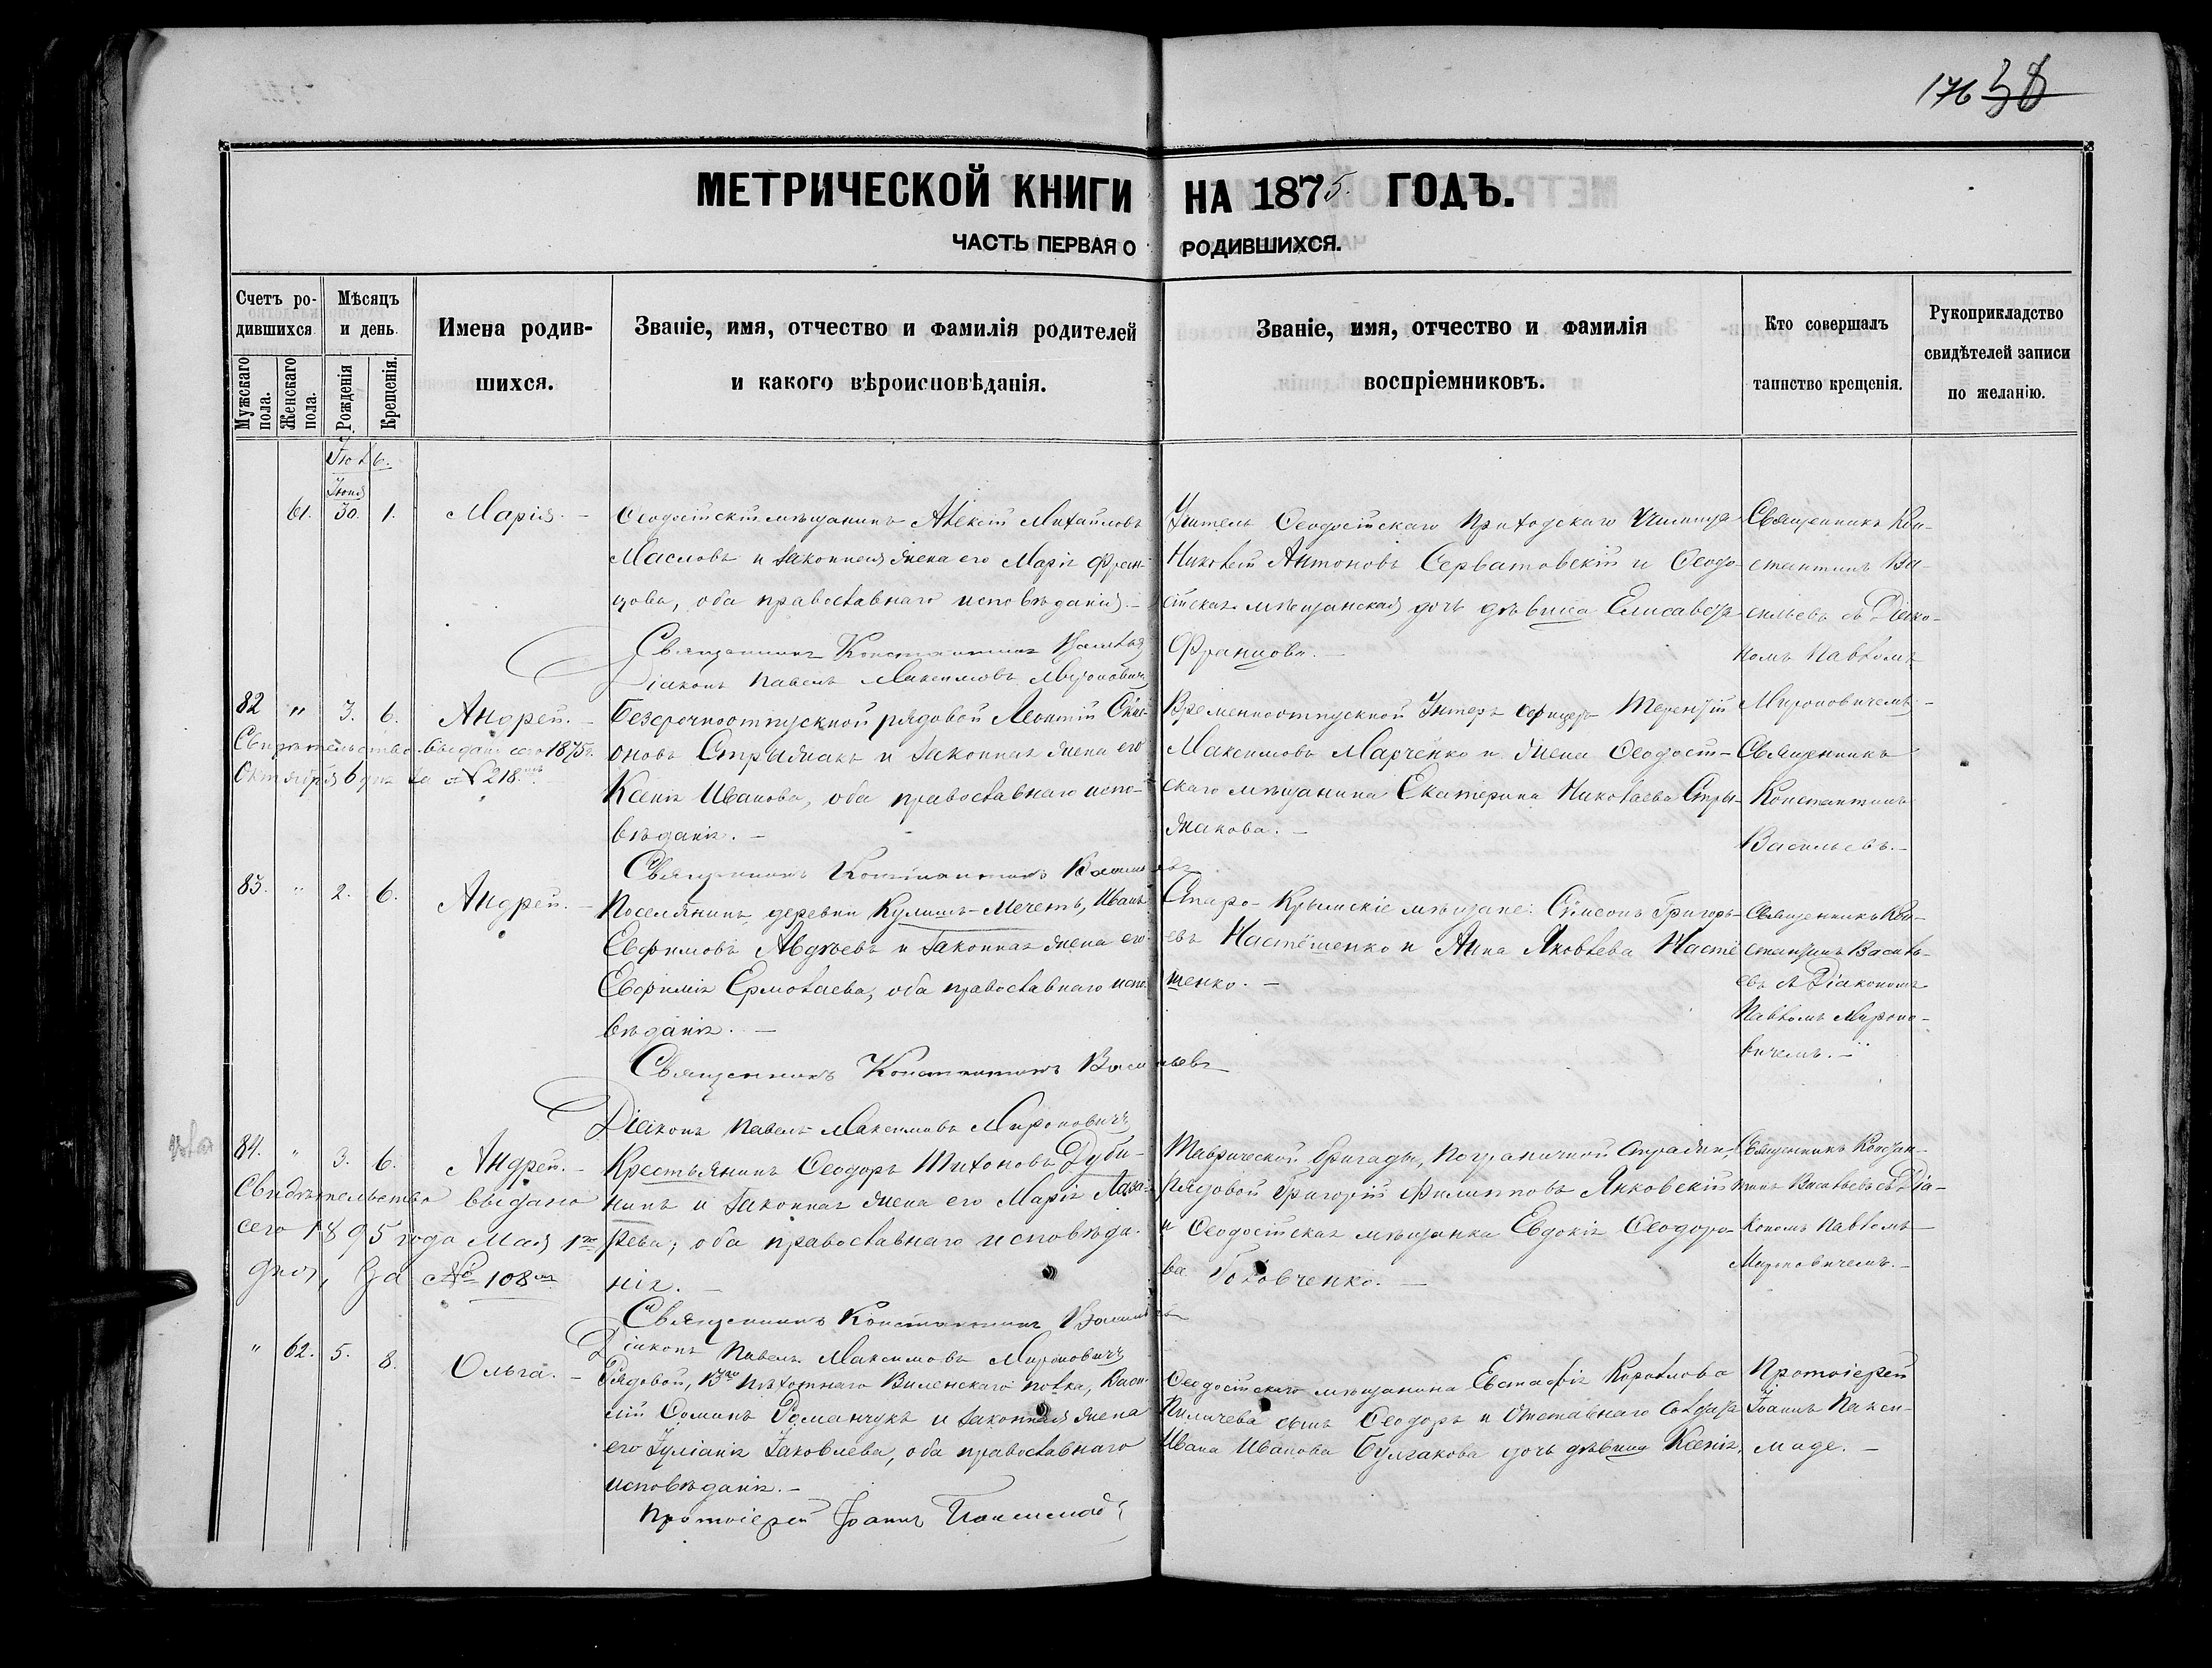 176 38
МЕТРИЧЕСКОЙ КНИГИ НА 1875. ГОДЪ.
ЧАСТЬ ПЕРВАЯ О РОДИВШИХСЯ.
Счетъ ро-
дившихся.
Мужскаго пола.
Женскаго пола.
Мѣсяцъ
и день.
Рожденія
Крещенія.
Имена родив-
шихся.
Званіе, имя, отчество и фамилія родителей
и какого вѣроисповѣданія.
Званіе, имя, отчество и фамилія
воспріемниковъ.
Кто совершалъ
таинство крещенія.
Рукоприкладство
свидѣтелей записи
по желанію.
Іюль.
Іюня
61. 30. 1. Марія. –
Ѳеодосійскій мѣщанинъ Алексій Михайловъ
Масловъ и законная жена его Марія Фран-
цова, оба православнаго исповѣданія. –
Священникъ Константинъ
Діаконъ Павелъ Максимовъ Мироновичъ
Учитель Ѳеодосійскаго Приходскаго Училища
Николай Антоновъ Серватовскій и Ѳеодо-
сійская мѣщанская дочь дѣвица Елисавета
Францова. –
Священникъ Кон-
стантинъ Ва-
сильевъ съ Діако-
номъ Павломъ
Мироновичемъ. –
82 " 3. 6. Андрей. –
Свидѣтельство выдано сего 1875 г.
Октября 6 дня за № 218.
Безсрочноотпускной рядовой Леонтій
оновъ Стрыжакъ и законная жена его
Ксенія Иванова, оба православнаго испо-
вѣданія. –
Священникъ Константинъ Васильевъ
Временноотпускной Унтеръ Офицеръ Терентій
Максимовъ Марченко и жена Ѳеодосій-
скаго мѣщанина Екатерина Николаева Стры-
жакова. –
Священникъ
Константинъ
Васильевъ. –
83. " 2. 6. Андрей. –
Поселянинъ деревни Кулишъ-Мечеть, Иванъ
Евфимовъ Авдѣевъ и законная жена его
Евфимія Ермолаева, оба православнаго испо-
вѣданія. –
Священникъ Константинъ Васильевъ
Діаконъ Павелъ Максимовъ Мироновичъ
Старо-Крымскіе мѣщане: Сѵмеонъ Григорь-
евъ Настёшенко и Анна Яковлева Настё-
шенко. –
Священникъ Кон-
стантинъ Василь-
евъ съ Діакономъ
Павломъ Мироно-
вичемъ. –
84. " 3. 6. Андрей. –
Свидѣтельство выдано
сего 1895 года Мая 1го
дня, за № 108
Крестьянинъ Ѳеодоръ Тихоновъ Дуби-
нинъ и законная жена его Марія Лаза-
рева, оба православнаго исповѣда-
нія. –
Священникъ Константинъ Васильевъ
Діаконъ Павелъ Максимовъ Мироновичъ
Таврической Бригады, Пограничной Стражи,
рядовой Григорій Филипповъ Янковскій
и Ѳеодосійская мѣщанка Евдокія Ѳеодоро-
ва Головченко. –
Священникъ Констан-
тинъ Васильевъ съ Діа-
кономъ Павломъ
Мироновичемъ. –
" 62. 5. 8. Ольга. –
Рядовой, 13го пѣхотнаго Виленскаго полка, Васи-
лій Романчукъ и законная жена
его Іуліанія Іаковлева, оба православнаго
исповѣданія. –
Протоіерей Іоаннъ
Ѳеодосійскаго мѣщанина Евстафія
сынъ Ѳеодоръ и Отставнаго Солдата
Ивана Иванова Булгакова дочь дѣвица Ксенія.
Протоіерей
Іоаннъ Пакси-
маде. –